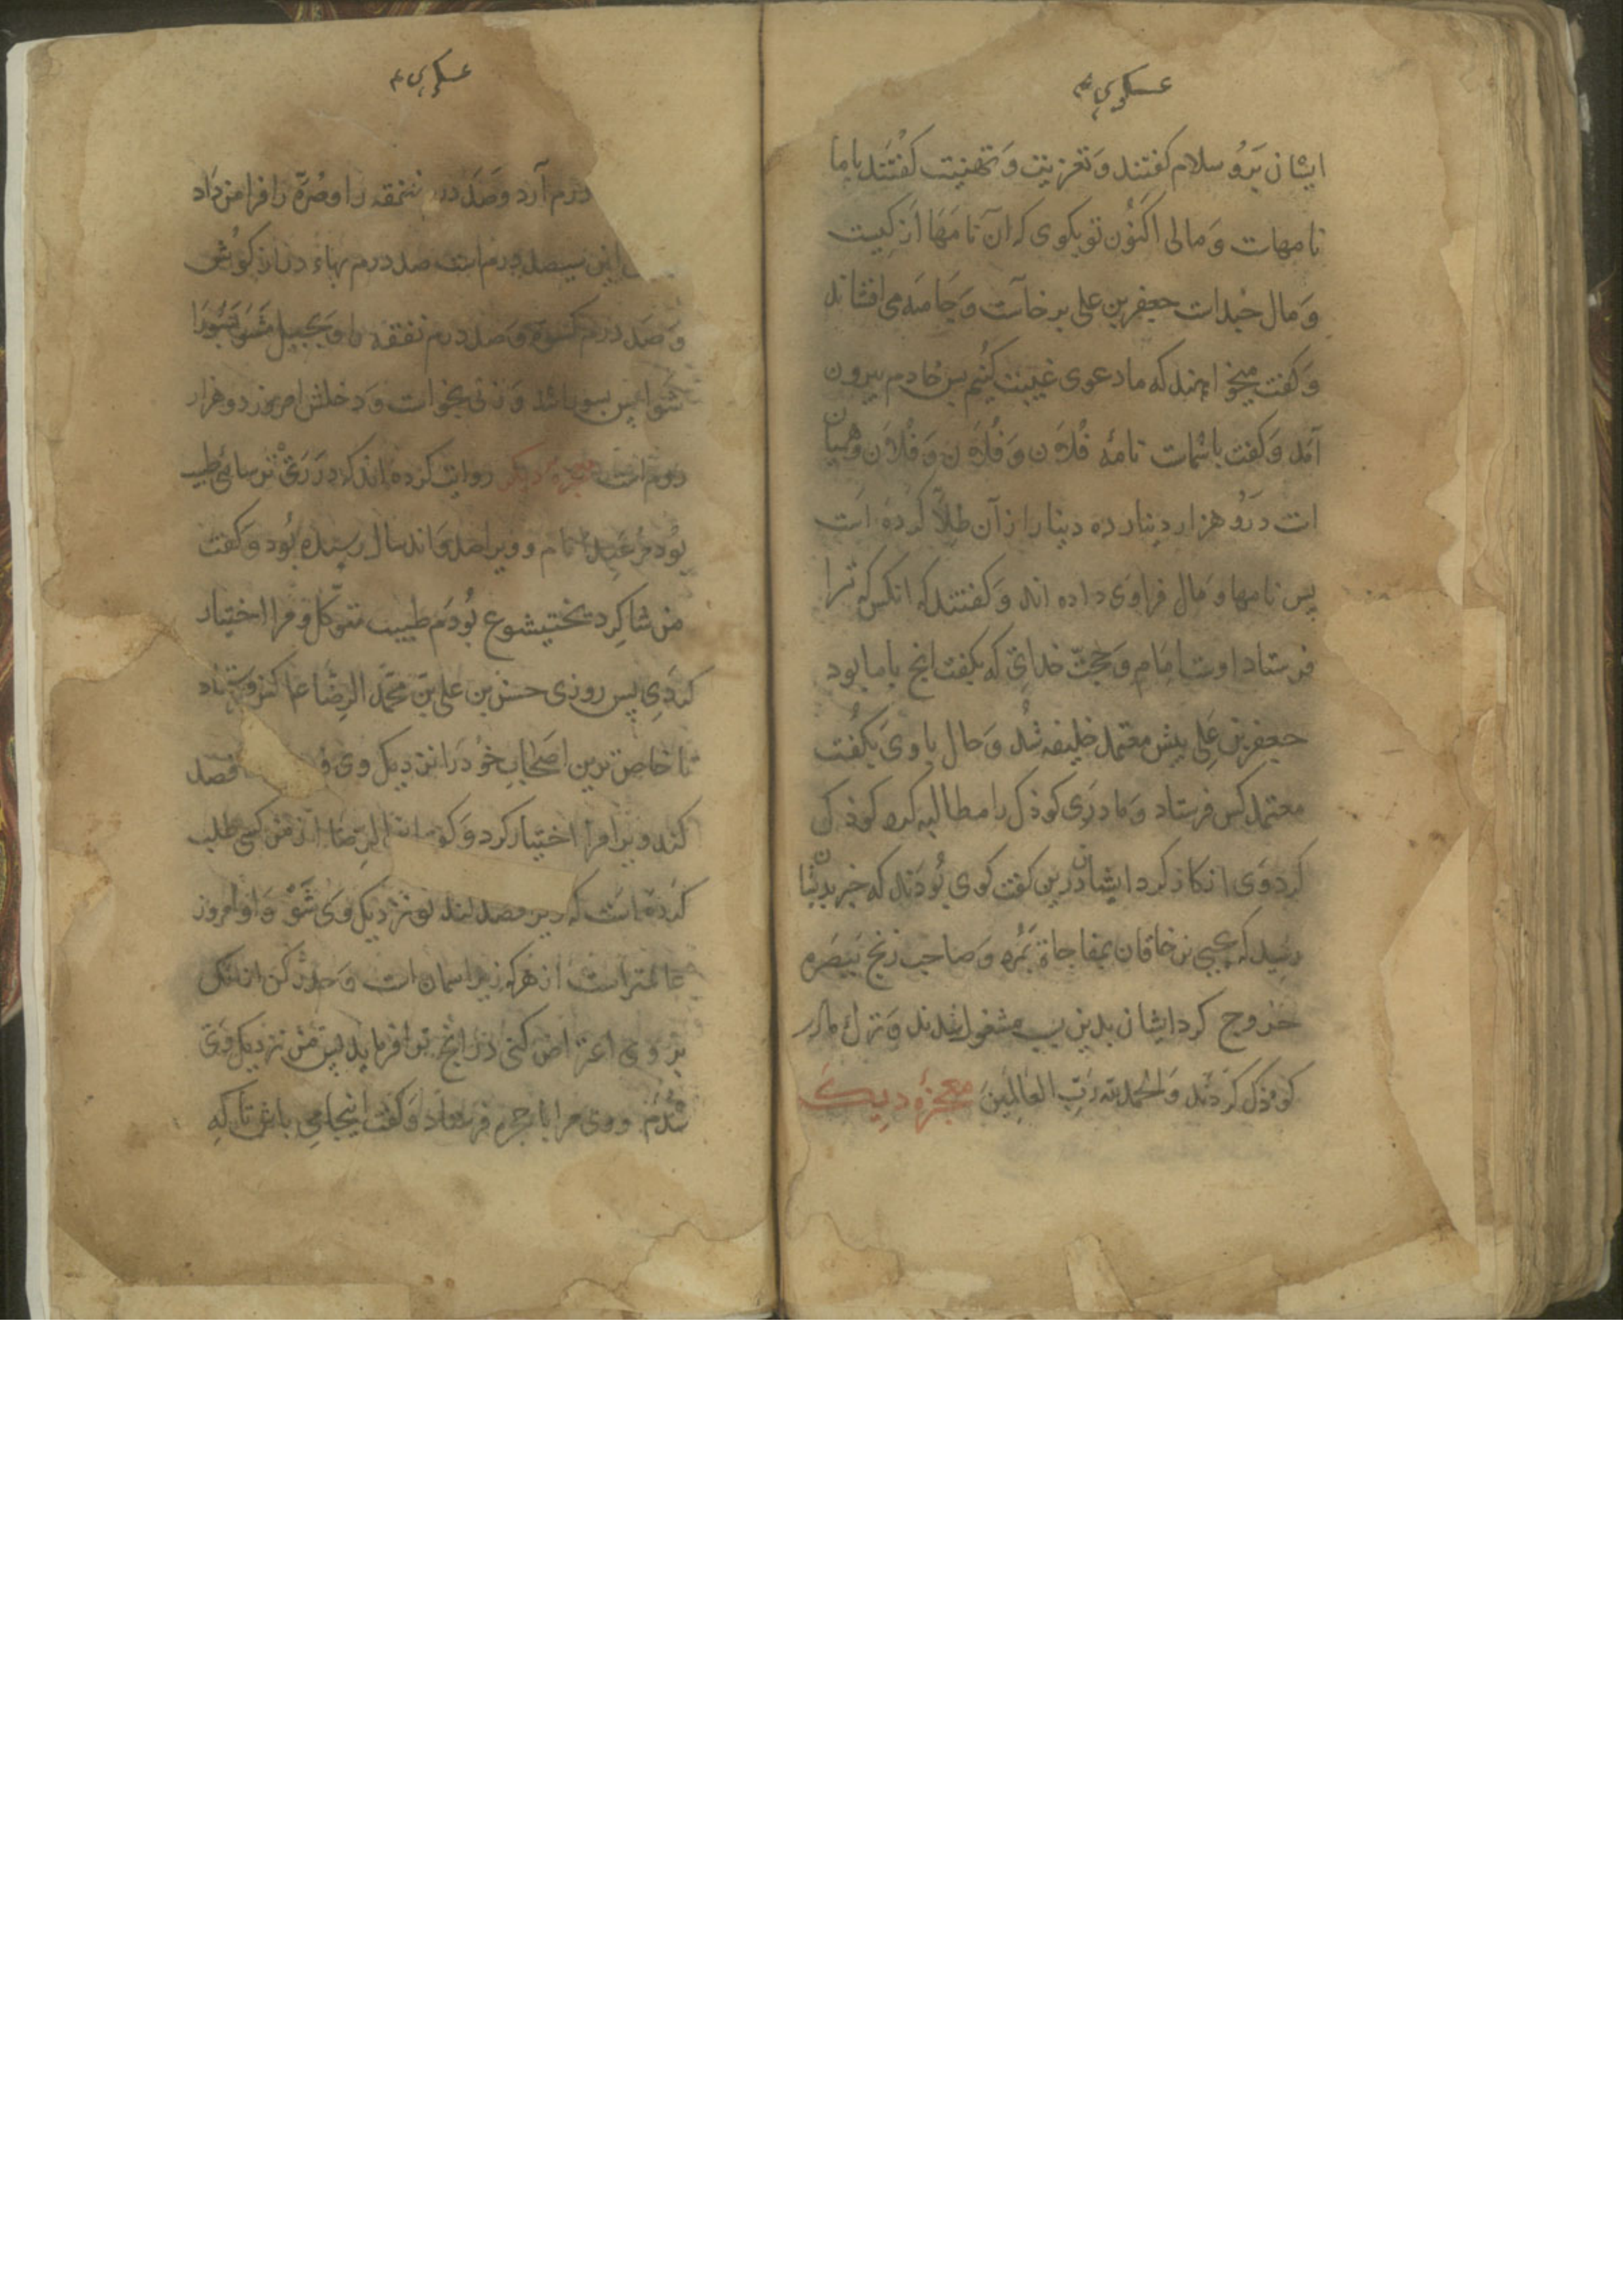 عسکری ع
ایشان بَرُو سلام کفتند وَ تعزیت وَ تهنیت کفتند با ما
نامهات وَ مالی اکنُون تو بکوی که آن نامَهَا از کیست
وَ مال جندات جعفر بن علی برخاست وَ جَامَه می افشاند
وَ کفت میخواهند که ما دعوی غیبت کنیم بس خادم بیرون
آمد وَ کفت باشمات نامهٔ فُلاَن وَ فُلاَن وَ فُلاَن وَ همیان
ات دَرُو هزار دینار ده دینار از آن طِلاَ کرده است
بس نامها وَ مال فراوَی داده اند وَ کفتند که انکس که ترا
فرستاد اوست امام وَ حجتّ خدای که بکفت انج با ما بود
جعفر بن عَلِی بیش معتمد خلیفه شُد وَ حال با وَی بکُفت
معتمد کس فرستاد وَ مادرَی کوذک را مطالبه کرد کوذک
کرد وَی انکار کرد ایشان درین کفت کوی بُودَند که خبر بدیشا
رسید که یحیی بن خاقان بمفاجاة بمُرد وَ صاحب زنج ببَصَره
خروج کرد ایشان بدین سبب مشغول شدند وَ ترک مادر
کوذک کردند وَ الحَمد لله رَبّ العَالِمینَ معجزهٔ دیکَ
عسکری ع
درم آرد وَ صَد درم نفقه را و صُرّه را فرا من دَاد
این سیصد درم است صد درم بهاءِ درازکوش
وَ صَد درم کسوة وَ صَد درم نفقه را وَ بجبل مَشَو بسُورَا
شو ابس بسورا شد وَ زنی بخواست وَ دخلش امروز دو هزار
درم است معجزهٔ دیکر روایت کرده اند که در رَیّ ترسائی طبیب
بُود مَر عَبدا نام و ویرا صد وَ اند سال رسیده بُود وَ کفت
من شاکِرد بختیشوع بُودم طبیب متوکّل و مرا اختیار
کردَی بس روزی حسن بن علی بن محمّد الرضَا عا کس فرستاد
تا خاص ترین اصحابِ خود را نزدیک وی فصد
کند ویرا مرا اختیار کرد وَ کفت ابن الرضا از من کسی طلب
کرده است که ویرا فصد کند تو نزدیک وَی شَوْ وَ او امروز
عالمتر است از هر که زیر اسمان است وَ حذر کن از انک
بر وی اعتراض کنی در انج ترا فرماید بس من نزدیک وَی
شُدم و وَی مرا با حجره فرستاد وَ کفت اینجا می باش تا که